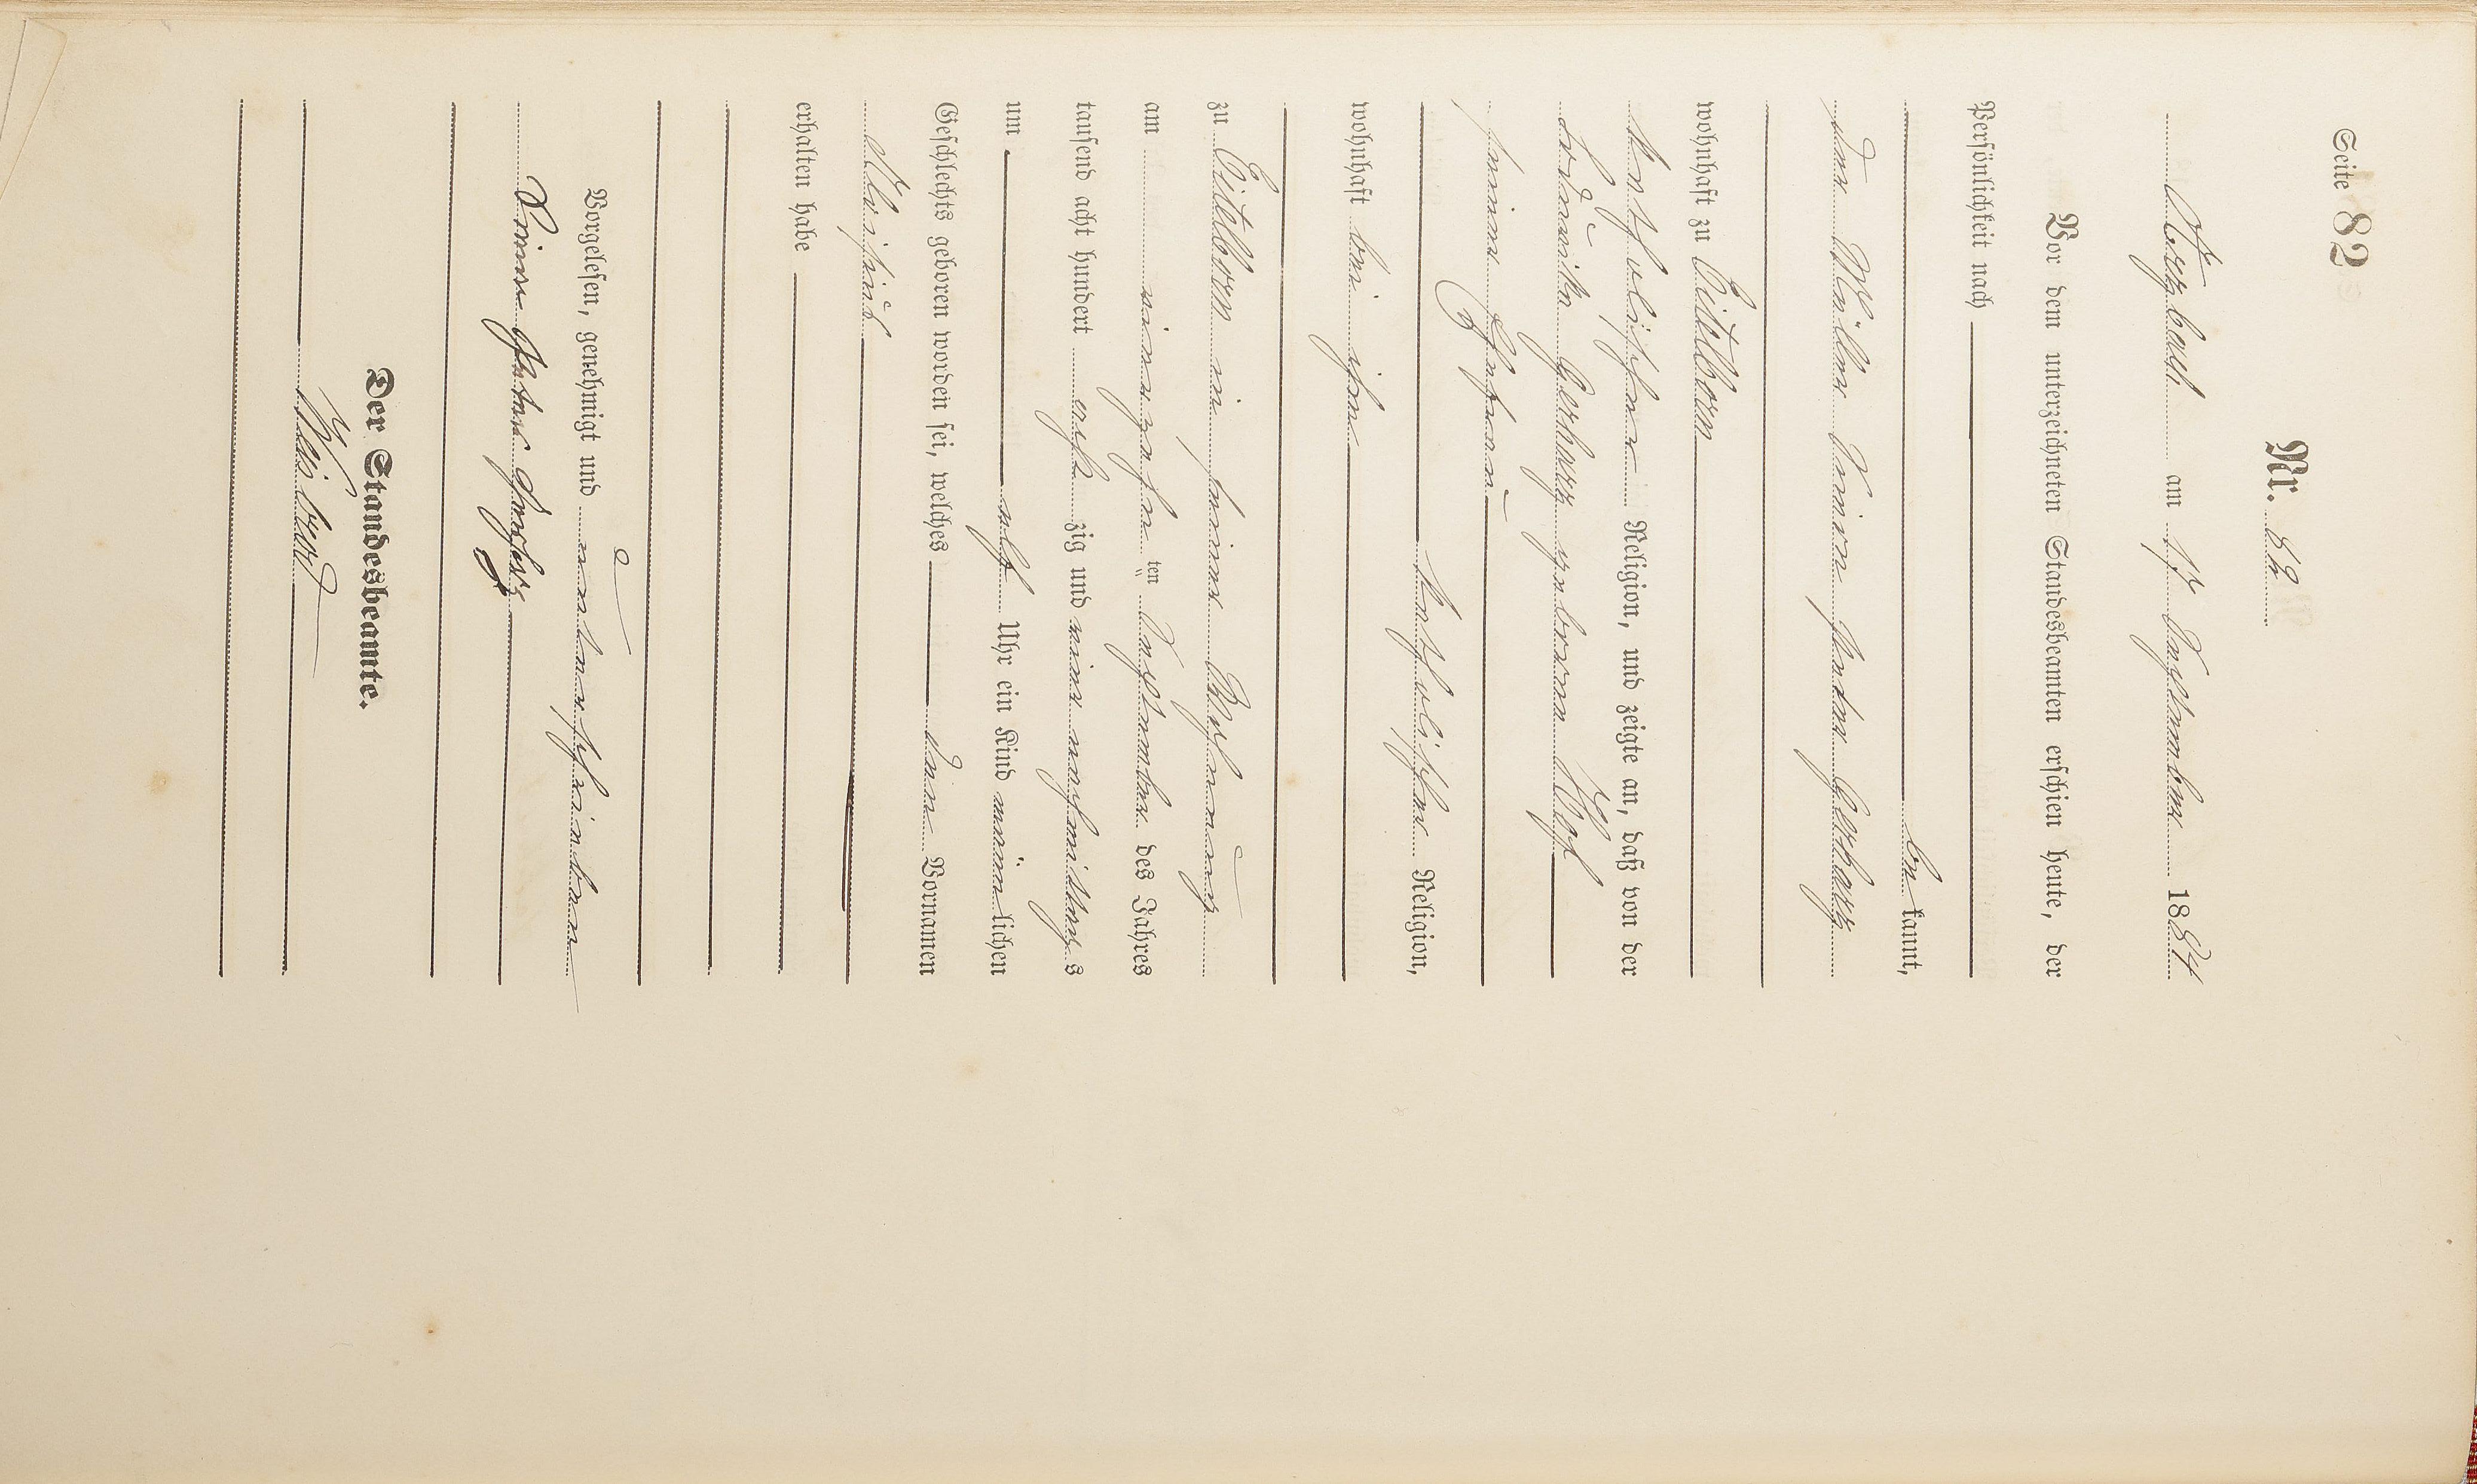 Seite 82
Nr. 82
Arzbach am 17 September 1884
Vor dem unterzeichneten Standesbeamten erschien heute, der
Persönlichkeit nach
be kannt,
der Müller Simon Peter Gerharz
wohnhaft zu Eitelborn
katholischer Religion, und zeigte an, daß von der
Ludwika Gerharz geborene
seiner Ehefrau
katholischer Religion,
wohnhaft bei ihm
zu Eitelborn in seiner Behausung
am vierzehn ten September des Jahres
tausend acht hundert acht zig und vier nachmittag s
um elf Uhr ein Kind männ lichen
Geschlechts geboren worden sei, welches den Vornamen
Aloisius
erhalten habe
Vorgelesen, genehmigt und unterschrieben
Simon Peter Gerharz
Der Standesbeamte.